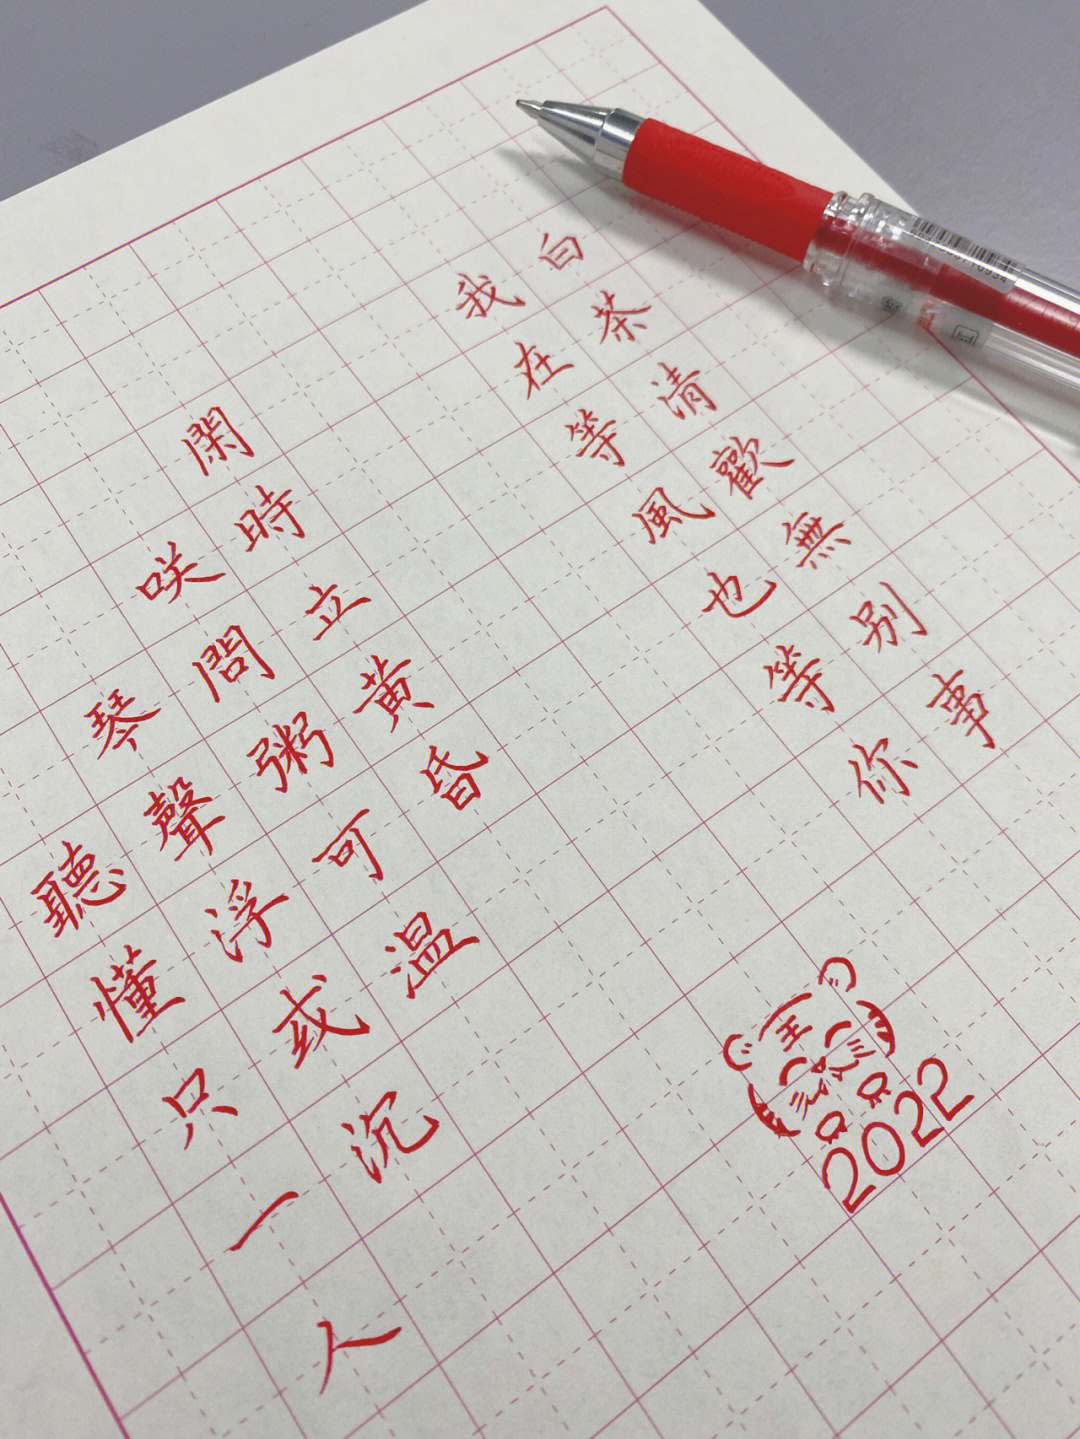 白茶清歡無别事
我在等風也等你
閑時立黄昏
咲問粥可温
琴聲浮或沉
聽懂只一人
王
2022